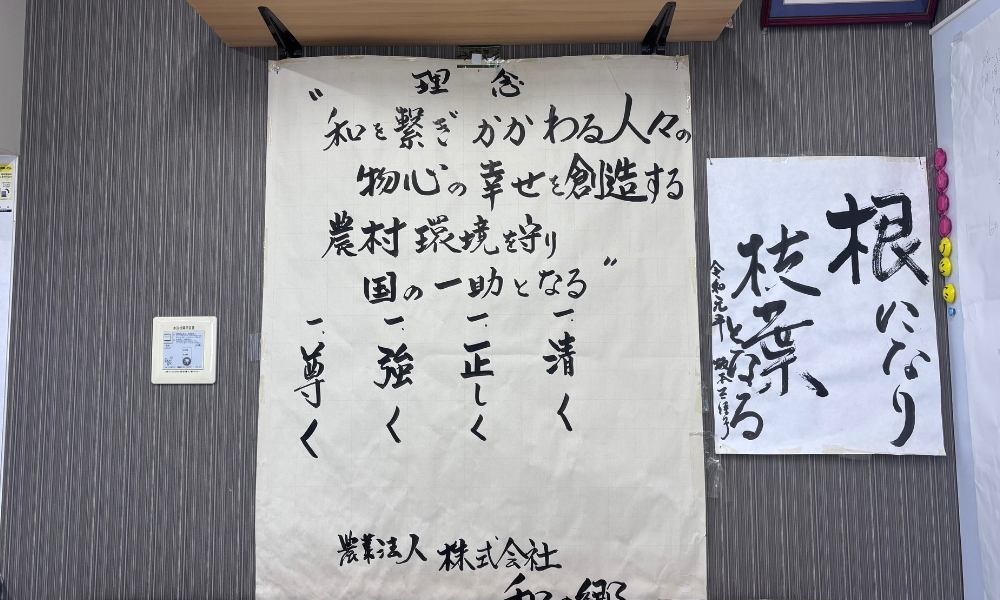 理 念
"和を繋ぎ かかわる人々の
物心の幸せを創造する
農村環境を守り
国の一助となる"
一、清く
一、正しく
一、強く
一、尊く
農業法人 株式会社
和の郷
根になり
枝葉となる
令和元年